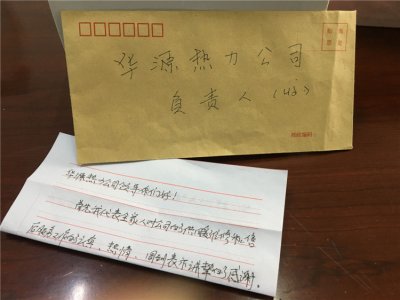 贴 邮
票 处
华源热力公司
负责人(收)
邮政编码
华源热力公司领导你们好!
首先我代表全家人对公司的供暖维修和信
反馈员工们的认真、热情、周到表示诚挚的感谢,